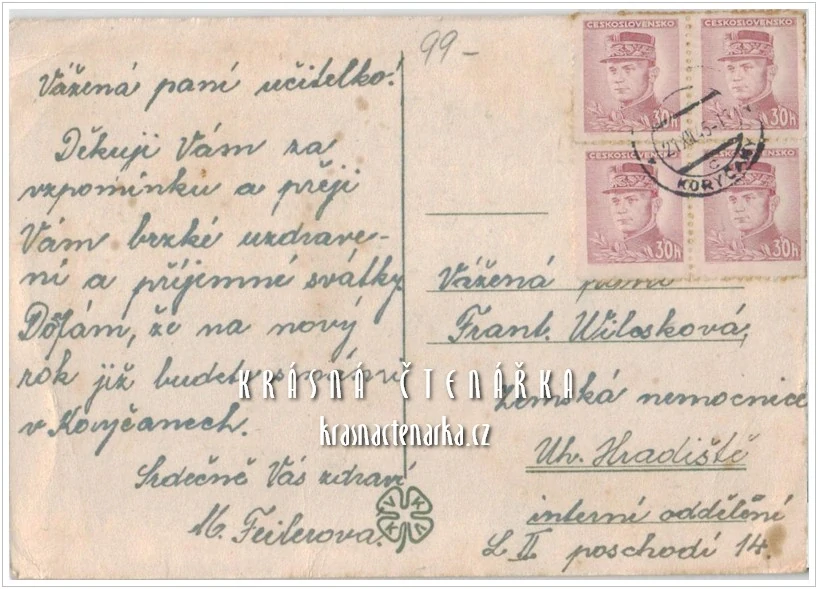 99-
Vážená paní učitelko!
Děkuji Vám za
vzpomínku a přeji
Vám brzké uzdrave-
ní a příjemné svátky
Doufám, že na nový
rok již budete s námi
v Koryčanech.
Srdečně Vás zdraví
M. Feilerova.
ČESKOSLOVENSKO
30H
ČESKOSLOVENSKO
30H
ČESKOSLOVENSKO
30H
30H
KORYČANY
Vážená paní
Frant. Wilosková,
Zemská nemocnice
Uh. Hradiště
interní oddělení
L II poschodí 14.
KRÁSNÁ ČTENÁŘKA
krasnactenarka.cz